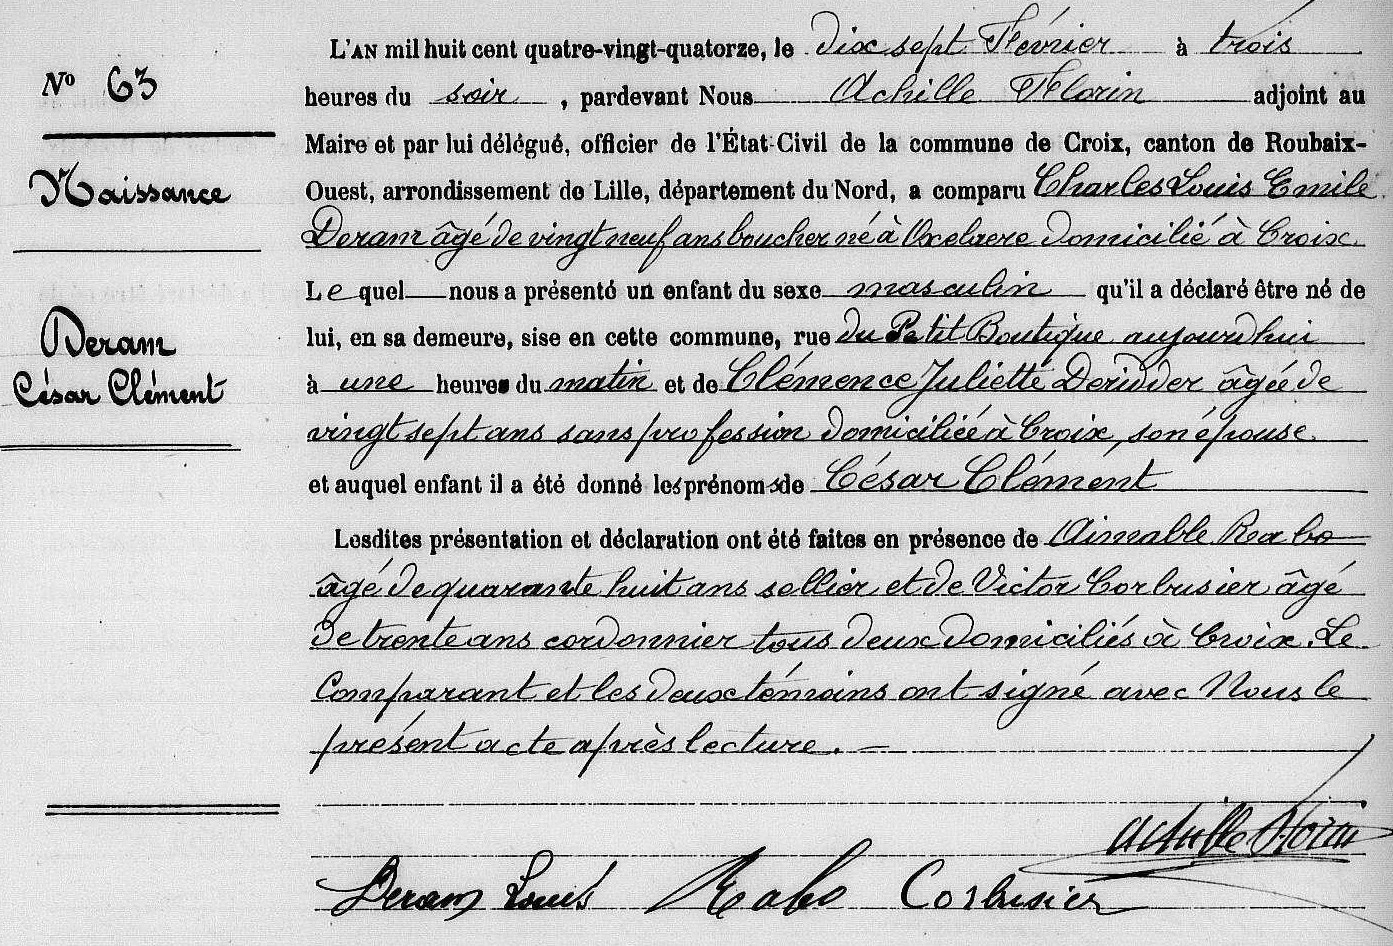 N° 63
Naissance
Deram
César Clément
L'AN mil huit cent quatre-vingt-quatorze, le dix sept Février à trois
heures du soir, pardevant Nous Achille Florin adjoint au
Maire et par lui délégué, officier de l'État-Civil de la commune de Croix, canton de Roubaix-
Ouest, arrondissement de Lille, département du Nord, a comparu Charles Louis Emile
Deram âgé de vingt neuf ans boucher né à Oxelaere domicilié à Croix.
Le quel nous a présenté un enfant du sexe masculin qu'il a déclaré être né de
lui, en sa demeure, sise en cette commune, rue du Petit Boutique aujourdhui
à une heures du matin et de Clémence Juliette Deridder âgée de
vingt sept ans sans profession domiciliée à Croix, son épouse.
et auquel enfant il a été donné les prénoms de César Clément
Lesdites présentation et déclaration ont été faites en présence de Aimable Rabo
âgé de quarante huit ans sellier et de Victor Corbusier âgé
de trente ans cordonnier tous deux domiciliés à Croix. Le
Comparant et les deux témoins ont signé avec Nous le
présent acte après lecture. —
Achille Florin
Deram Louis Rabo Corbusier